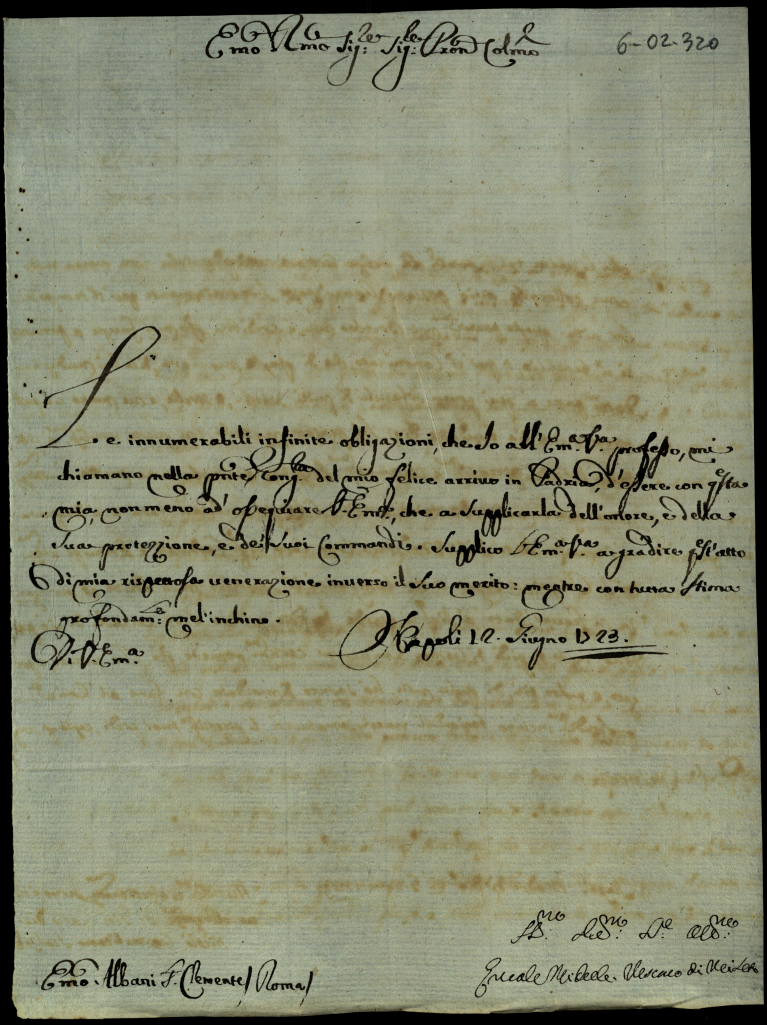 Emo Rmo Sig.re Sig.re Pron Colmo
6-02-320
Le innumerabili infinite obligazioni, che Io all' Em.a V.a professo, mi
chiamano nella pnte Cong.a del mio felice arrivo in Padria, d'essere con q.sta
mia, non meno ad' ossequiare V. Emza, che a supplicarla dell'onore, e della
sua protezzione, e de' suoi Commandi. Supplico l'Em.a V.a a gradire q.st'atto
di mia rispettosa venerazione inverso il suo merito: mentre con tutta stima
profondam.e mel'inchino.
Di V. Em.a
Napoli 12. Giugno 1723.
Emo. Albani S. Clemente / Roma /
Vescovo di